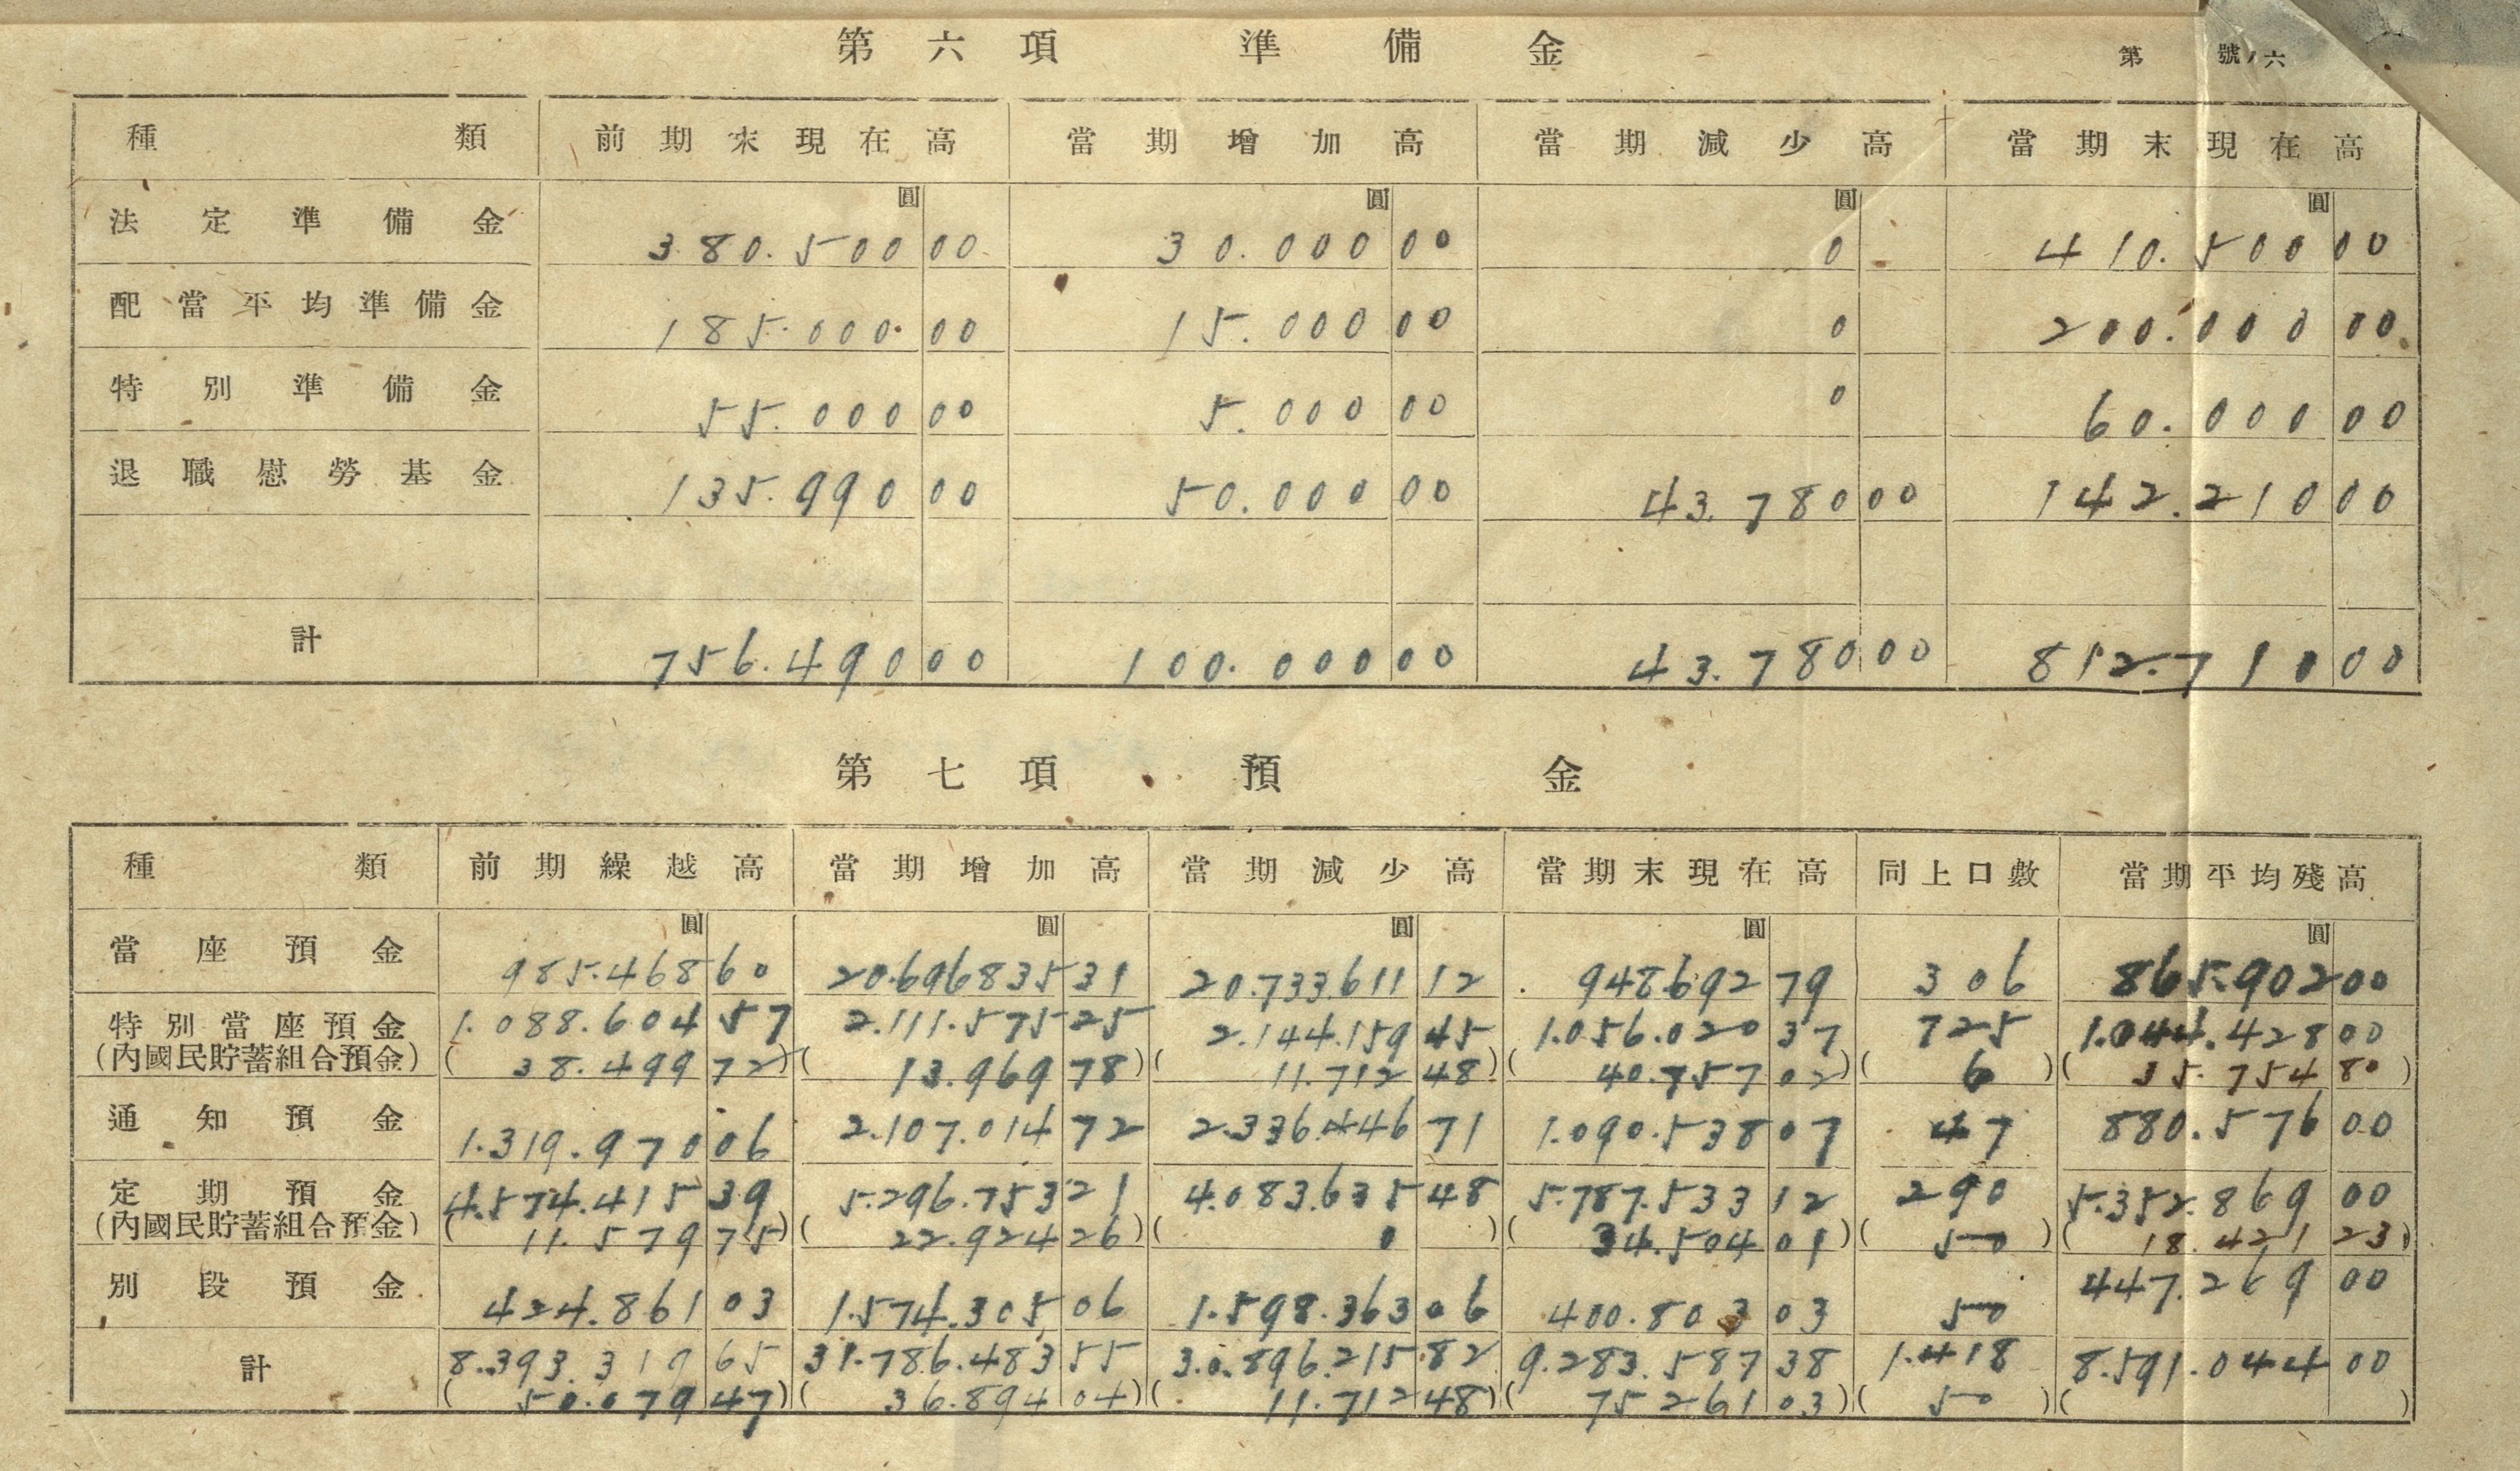 第六項 準備金
第 號ノ六
種類 前期末現在高 當期增加高 當期減少高 當期末現在高
圓 圓 圓 圓
法定準備金 380.500 00 30.000 00 0 410.500 00
配當平均準備金 185.000 00 15.000 00 0 200.000 00
特別準備金 55.000 00 5.000 00 0 60.000 00
退職慰勞基金 135.990 00 50.000 00 43.780 00 142.210 00
計 756.490 00 100.000 00 43.780 00 812.710 00
第七項 預金
種類 前期繰越高 當期增加高 當期減少高 當期末現在高 同上口數 當期平均殘高
圓 圓 圓 圓 圓
當座預金 985.468 60 20.696835 31 20.733.611 12 948692 79 306 865.902 00
特別當座預金 1.088.604 57 2.111.575 25 2.144.159 45 1.056.020 37 725 1.044.428 00
(內國民貯蓄組合預金) (38.499 72) (13.969 78) (11.712 48) (40.757 02) (6) (35.754 80)
通知預金 1.319.970 06 2.107.014 72 2.336.446 71 1.090.538 07 47 880.576 00
定期預金 4.574.415 39 5.296.753 21 4.083.635 48 5.787.533 12 290 5.352.869 00
(內國民貯蓄組合預金) (11.579 75) (22.924 26) (0) (34.504 01) (50) (18.421 23)
別段預金 424.861 03 1.574.305 06 1.598.363 06 400.803 03 50 447.269 00
計 8.393.319 65 31.786.483 55 30.896.215 82 9.283.587 38 1.418 8.591.044 00
(50.079 47) (36.894 04) (11.712 48) (75261 03) (50) ( )